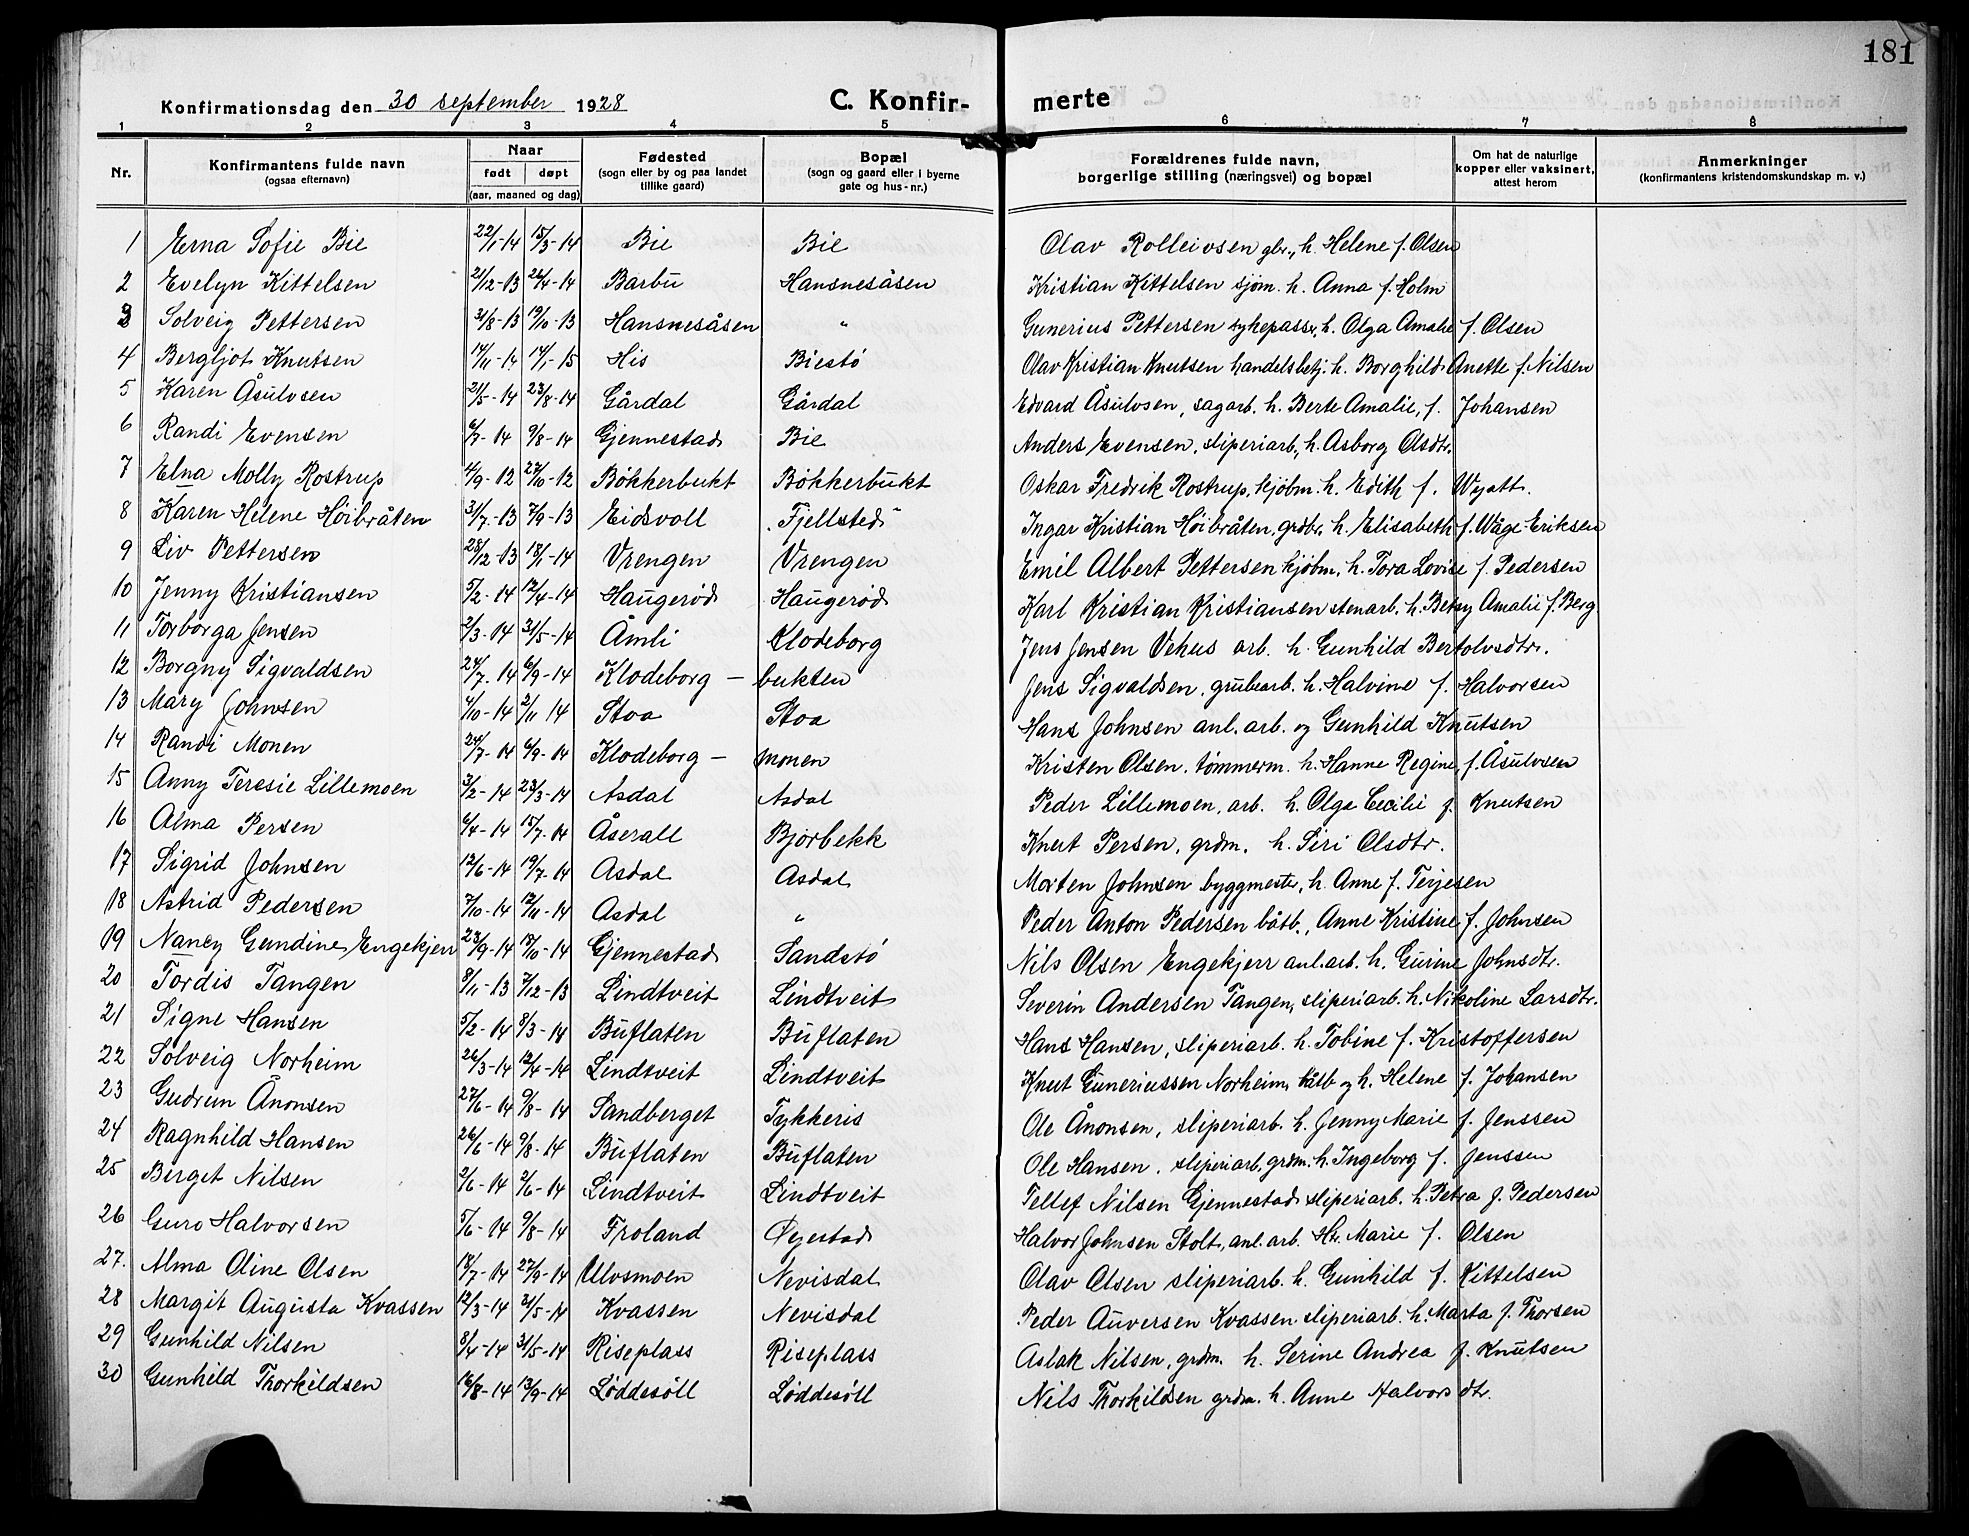 181
Konfirmationsdag den 30 september 1928 C. Konfir- merte
1 2 3 4 5 6 7 8
Nr. Konfirmantens fulde navn (ogsaa efternavn) Naar født døpt (aar, maaned og dag) Fødested (sogn eller by og paa landet tillike gaard) Bopæl (sogn og gaard eller i byerne gate og hus-nr.) Forældrenes fulde navn, borgerlige stilling (næringsvei) og bopæl Om hat de naturlige kopper eller vaksinert, attest herom Anmerkninger (konfirmantens kristendomskundskap m. v.)
1 Erna Sofie Bie 22/1-14 15/3-14 Bie Bie Olav Rolleivsen gbr., h. Helene f. Olsen
2 Evelyn Kittelsen 21/12-13 26/4-14 Barbu Hansnesåsen Kristian Kittelsen sjøm. h. Anna f. Holm
3 Solveig Pettersen 31/8-13 19/10-13 Hansnesåsen " Gunerius Pettersen sykepass., h. Olga Amalie f. Olsen
4 Bergljot Knutsen 14/11-14 17/1-15 His Biestø Olav Kristian Knutsen handelsbetj. h. Borghild Anette f. Nilsen
5 Karen Åsulvsen 21/5-14 23/8-14 Gårdal Gårdal Edvard Åsulvsen, sagarb. h. Berte Amalie, f. Johansen
6 Randi Evensen 6/7-14 9/8-14 Gjennestad Bie Anders Evensen, sliperiarb., h. Asborg Olsdtr.
7 Elna Molly Rostrup 4/9-12 27/10-12 Bökkerbukt Bökkerbukt Oskar Fredrik Rostrup, kjöbm. h. Edith f. Wyatt.
8 Karen Helene Höibråten 31/7-13 7/9-13 Eidsvoll "Fjellsted" Ingar Kristian Höibråten, grdbr., h. Elisabeth f. Wåge-Eriksen
9 Liv Pettersen 28/12 13 18/1-14 Vrengen Vrengen Emil Albert Pettersen kjöbm. h. Tora Lovise f. Pedersen
10 Jenny Kristiansen 5/2-14 12/4-14 Haugeröd Haugeröd Karl Kristian Kristiansen stenarb. h. Betsy Amalie f. Berg
11 Torborga Jensen 2/3-14 31/5-14 Åmli Klodeborg Jens Jensen Vehus arb. h. Gunhild Bertolvsdtr.
12 Borgny Sigvaldsen 24/7-14 6/9-14 Klodeborg - bukten Jens Sigvaldsen, grubearb. h. Halvine f. Halvorsen
13 Mary Johnsen 4/10-14 2/11 14 Stoa Stoa Hans Johnsen anl. arb. og Gunhild Knutsen
14 Randi Monen 24/7-14 6/9-14 Klodeborg - monen Kristen Olsen, tömmerm. h. Hanne Regine, f. Åsulvsen
15 Anny Teresie Lillemoen 3/2-14 23/3-14 Asdal Asdal Peder Lillemoen, arb. h. Olga Cecilie f. Knutsen
16 Alma Persen 6/4-14 15/7-14 Åserall Bjorbekk Knut Persen, grdm. h. Siri Olsdtr.
17 Sigrid Johnsen 12/6-14 19/7-14 Asdal Asdal Morten Johnsen byggmester, h. Anne f. Terjesen
18 Astrid Pedersen 7/10-14 12/11-14 Asdal " Peder Anton Pedersen båtb., Anne Kristine f. Johnsen
19 Nancy Gundine Engekjerr 23/9-14 18/10-14 Gjennestad Sandstö Nils Olsen Engekjerr anl.arb. h. Gurine Johnsdtr.
20 Tordis Tangen 8/11-13 7/12-13 Lindtveit Lindtveit Severin Andersen Tangen, sliperiarb. h. Nikoline Larsdtr.
21 Signe Hansen 5/2-14 8/3-14 Buflaten Buflaten Hans Hansen, sliperiarb. h. Tobine f. Kristoffersen
22 Solveig Norheim 26/3-14 12/4-14 Lindtveit Lindtveit Knut Guneriussen Norheim, båtb og h. Helene f. Johansen
23 Gudrun Ånonsen 27/6-14 9/8-14 Sandberget Tykkeris Ole Ånonsen, sliperiarb. h. Jenny Marie f. Jenssen
24 Ragnhild Hansen 26/6-14 9/8-14 Buflaten Buflaten Ole Hansen, sliperiarb, grdm. h. Ingeborg f. Jenssen
25 Berget Nilsen 2/6-14 2/6-14 Lindtveit Lindtveit Tellef Nilsen Gjennestad sliperiarb. h. Petra f. Pedersen
26 Guro Halvorsen 5/6-14 9/8-14 Froland Øyestad Halvor Johnsen Stolt, anl. arb. Htr. Marie f. Olsen
27. Alma Oline Olsen 18/7-14 27/9-14 Ulvsmoen Nevisdal Olav Olsen sliperiarb. h. Gunhild f. Kittelsen
28 Margit Augusta Kvassen 12/3-14 21/5-14 Kvassen Nevisdal Peder Auversen Kvassen sliperiarb. h. Marta f. Thorsen
29 Gunhild Nilsen 8/4-14 31/5-14 Riseplass Riseplass Aslak Nilsen, grdm. h. Serine Andrea f. Knutsen
30 Gunhild Thorkildsen 16/8-14 13/9-14 Löddesöll Löddesöll Nils Thorkildsen grdm. h. Anne Halvorsdtr.